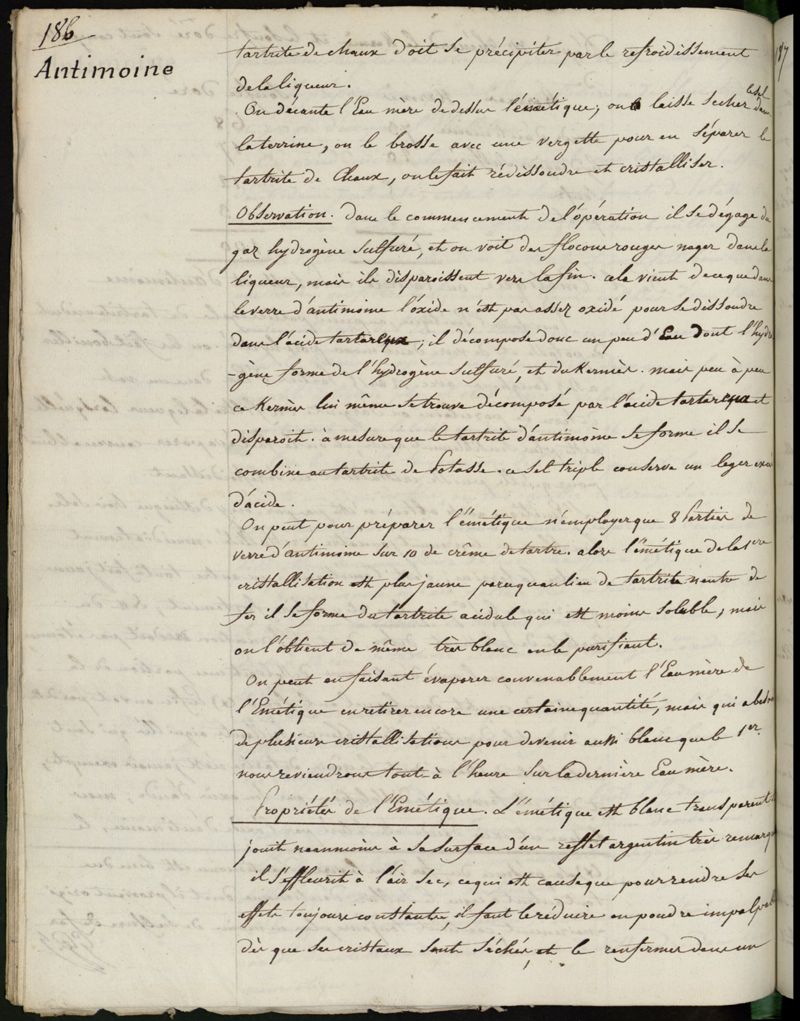 186
Antimoine
tartrite de chaux doit se précipiter par le refroidissement
de la liqueur.
On décante l'Eau mère de dessus l'émétique, on laisse secher le sel dans
la terrine, on le brosse avec une vergette pour en séparer le
tartrite de Chaux, on le fait redissoudre et cristalliser.
Observation. dans le commencement de l'opération il se dégage du
gaz hydrogène sulfuré, et on voit des flocons rouges nager dans la
liqueur, mais ils disparoissent vers la fin. cela vient de ce que dans
le verre d'antimoine l'oxide n'est pas assez oxidé pour se dissoudre
dans l'acide tartareux; il décompose donc un peu d'Eau dont l'hydro
-gène forme de l'hydrogène sulfuré, et du Kermès. mais peu à peu
ce Kermès lui même se trouve décomposé par l'acide tartareux et
disparoit. à mesure que le tartrite d'antimoine se forme il se
combine au tartrite de Potasse. ce sel triple conserve un leger excès
d'acide.
On peut pour préparer l'émétique n'employer que 8 Parties de
verre d'antimoine sur 10 de crême de tartre. alors l'émétique de la 1ere
cristallisation est plus jaune parcequ'au lieu de tartrite neutre de
fer il se forme du tartrite acidule qui est moins soluble, mais
on l'obtient de même très blanc en le purifiant.
On peut en faisant évaporer convenablement l'Eau mère de
l'Emétique en retirer encore une certaine quantité, mais qui a besoin
de plusieurs cristallisations pour devenir aussi blanc que le 1er.
nous reviendrons tout à l'heure sur la dernière Eau mère.
Propriétés de l'Emétique. L'émétique est blanc transparent
jouit néanmoins à sa surface d'un reflet argentin très remarq
il s'effleurit à l'air sec, ce qui est cause que pour rendre ses
effets toujours constants, il faut le réduire en poudre impalpable
dès que ses cristaux sont séchés, et le renfermer dans un
187